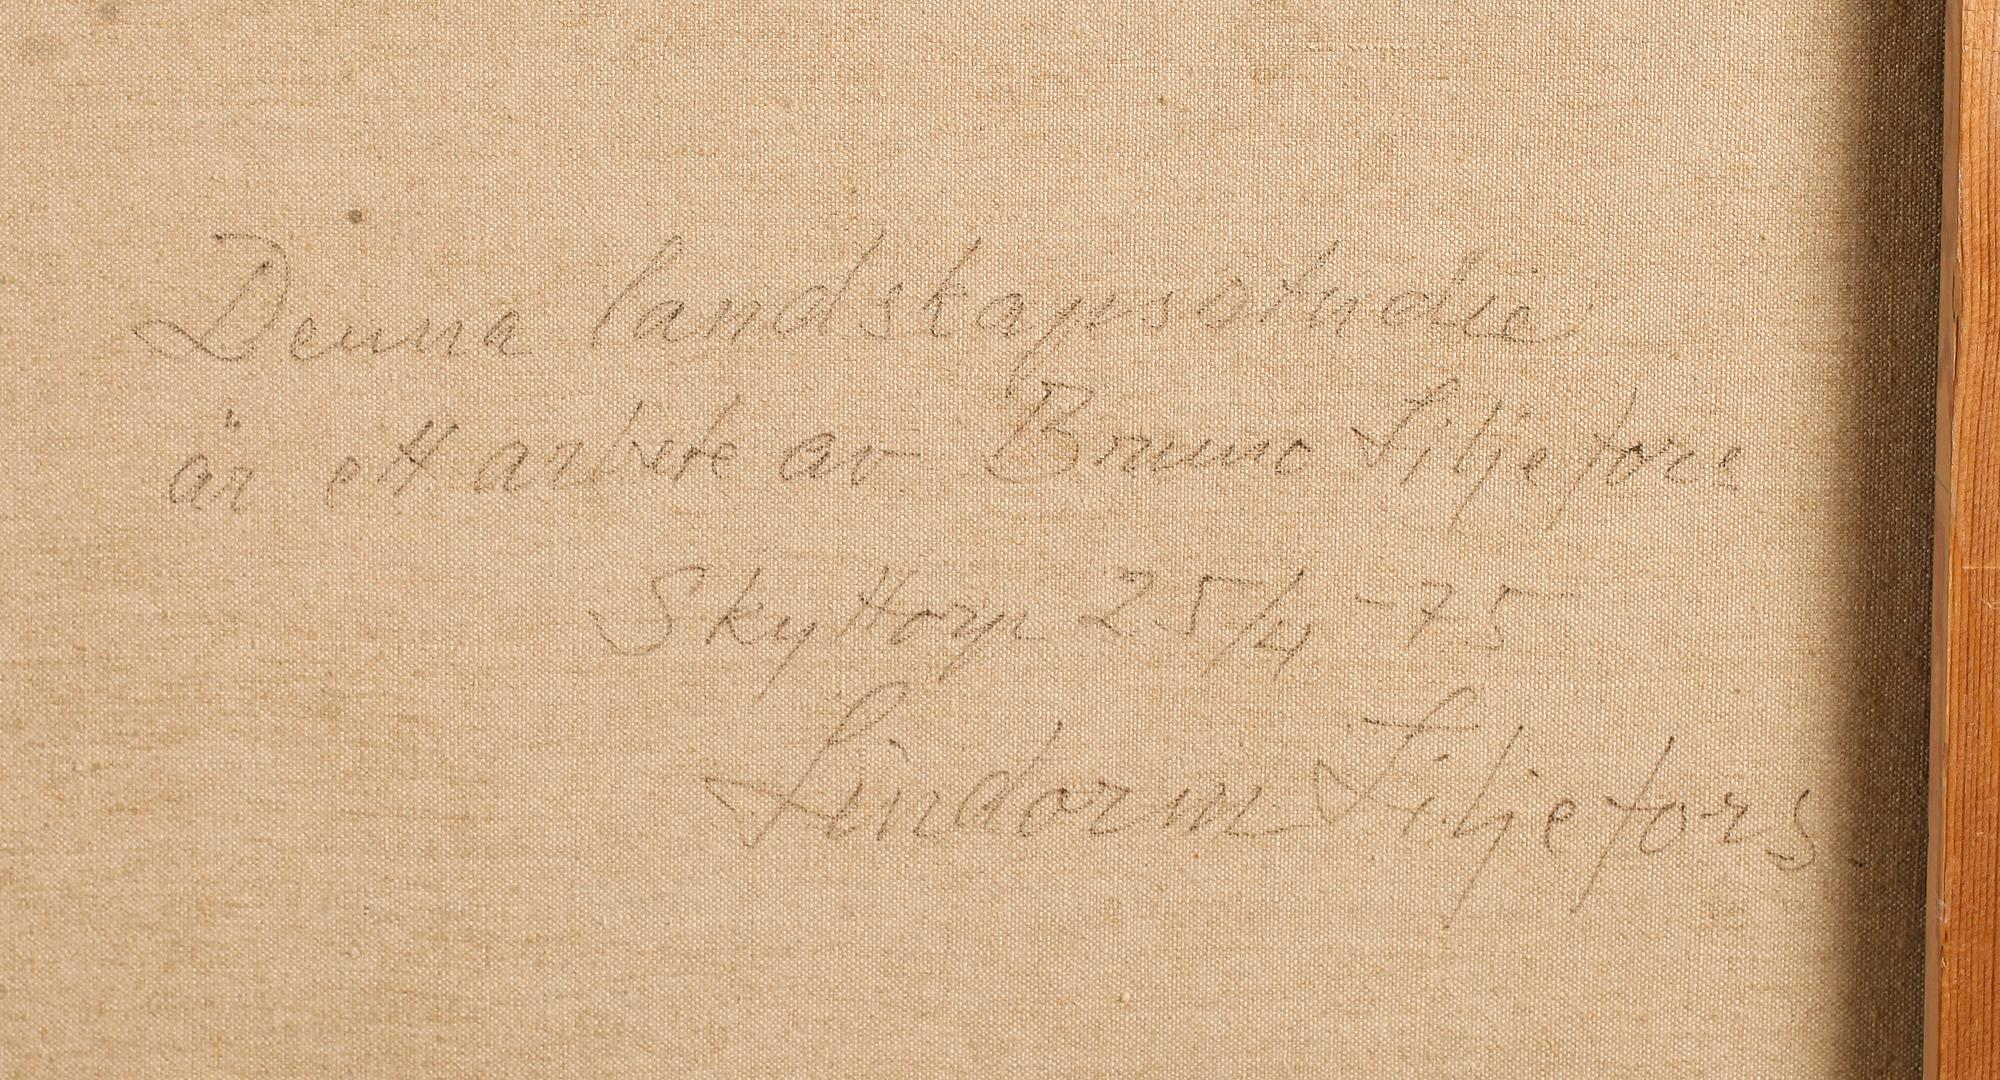 Denna landskapsstudie
är ett arbete av Bruno Liljefors
Skyttorp 25/4 -75
Lindorm Liljefors.